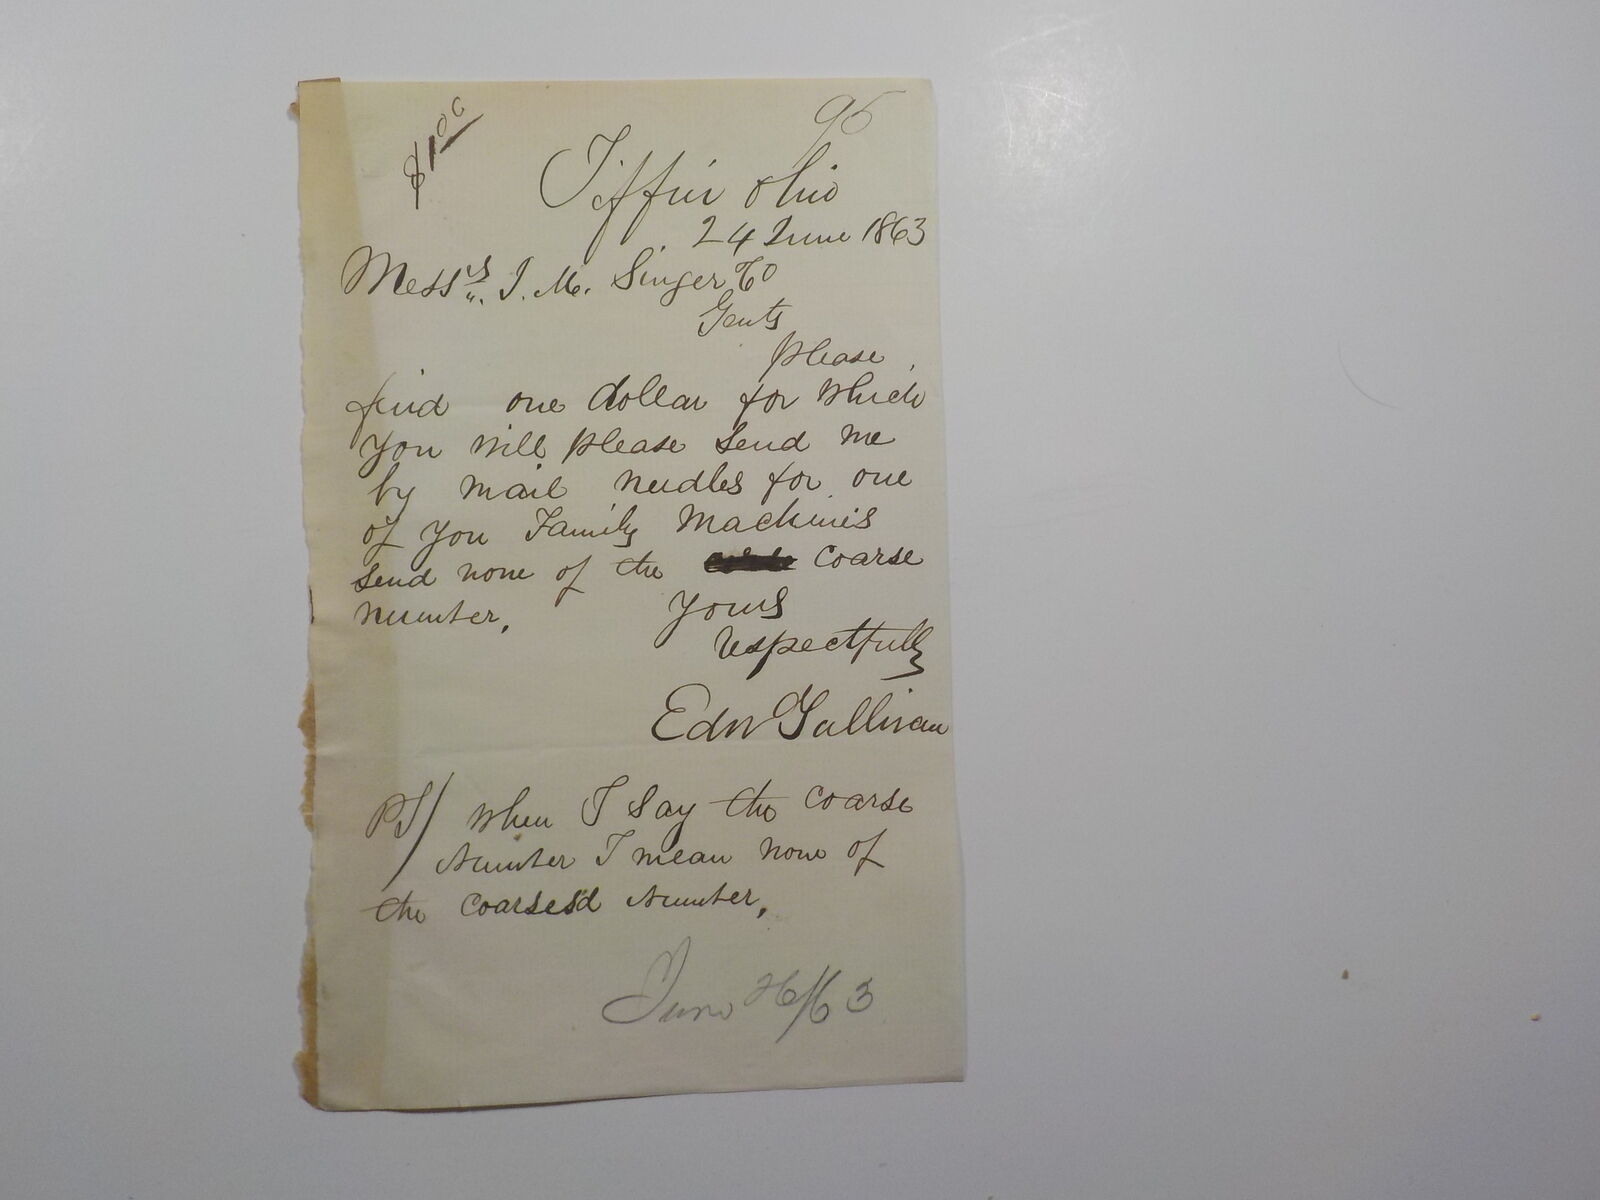 $1.00
95
Tiffin Ohio
24 June 1863
Messrs. I. M. Singer & Co
Gents
please
find one dollar for which
you will please send me
by mail needles for one
of you Family Machines
send none of the coarse
number. Yours
respectfully
Edw Sullivan
PS/ when I say the coarse
number I mean none of
the coarsesd number.
June 26/63